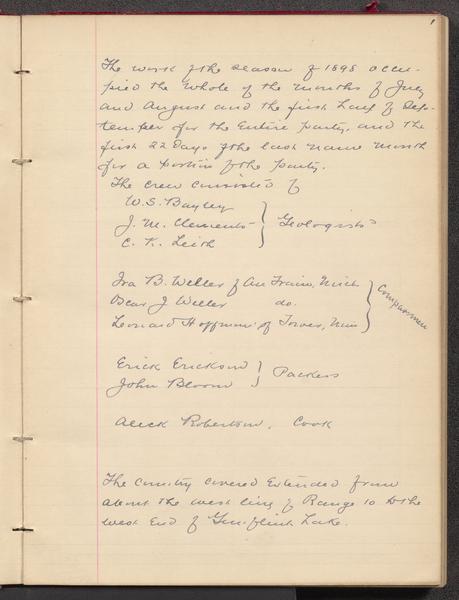 1
The work of the season of 1898 occu-
pied the whole of the months of July
and August and the first half of Sep-
tember for the Entire party, and the
first 22 Days of the last name month
for a portion of the party.
The crew consisted of
W. S. Bayley
J. M. Clements } Geologists
C. K. Leith
Ira B. Weller of Au Train, Mich
Oscar J Weller do. } Compassmen
Leonard Hoffman of Tower, Minn
Erick Erickson } Packers
John Bloom
Alick Robertson, Cook
The country covered Extended from
about the west line of Range 10 to the
west End of Gunflint Lake.